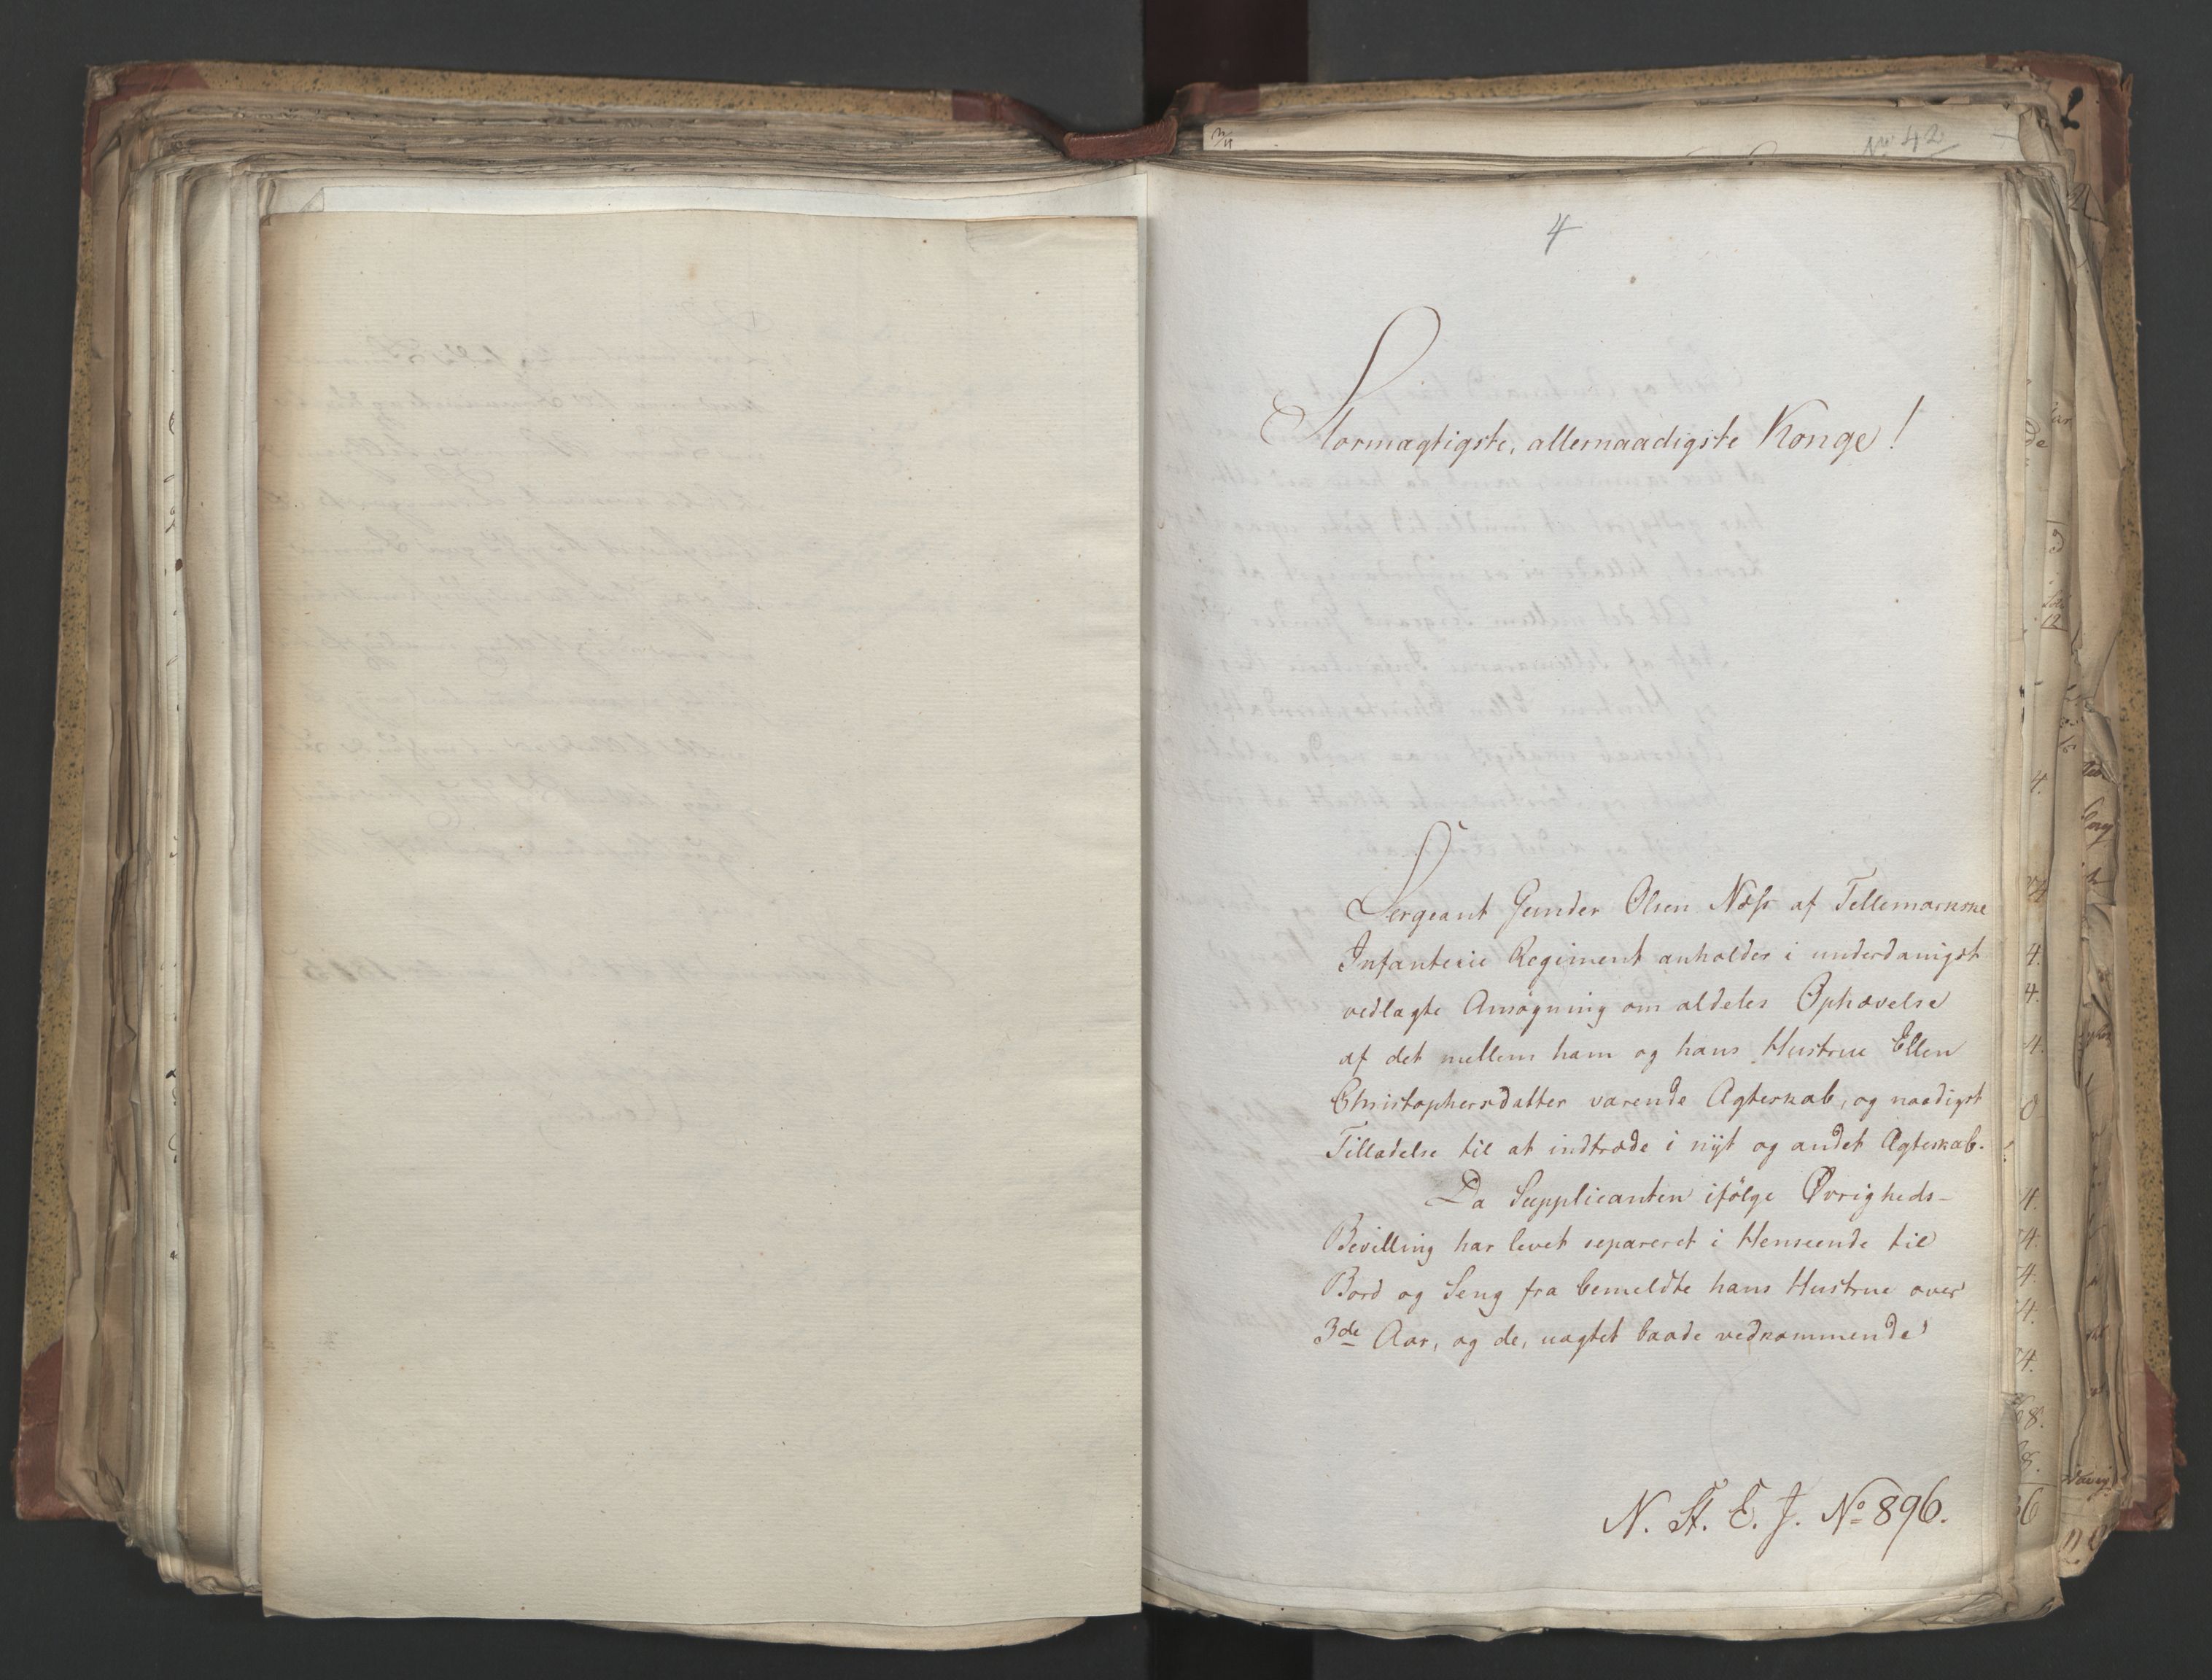 No 42
4
Stormægtigste, allernaadigste Konge!
Sergeant Gunder Olsen Næss af Tellemarkske
Infanterie Regiment anholder i underdanigst
vedlagte Ansøgning om aldeles Ophævelse
af det mellem ham og hans Hustrue Ellen
Christophersdatter værende Ægteskab, og naadigst
Tilladelse til at indtræde i nÿt og andet Ægteskab.
Da Supplicanten ifölge Øvrigheds-
Bevilling har levet separeret i Henseende til
Bord og Seng fra bemeldte hans Hustrue over
3de Aar, og de, uagtet baade vedkommende
N. St. E. J. No 896.